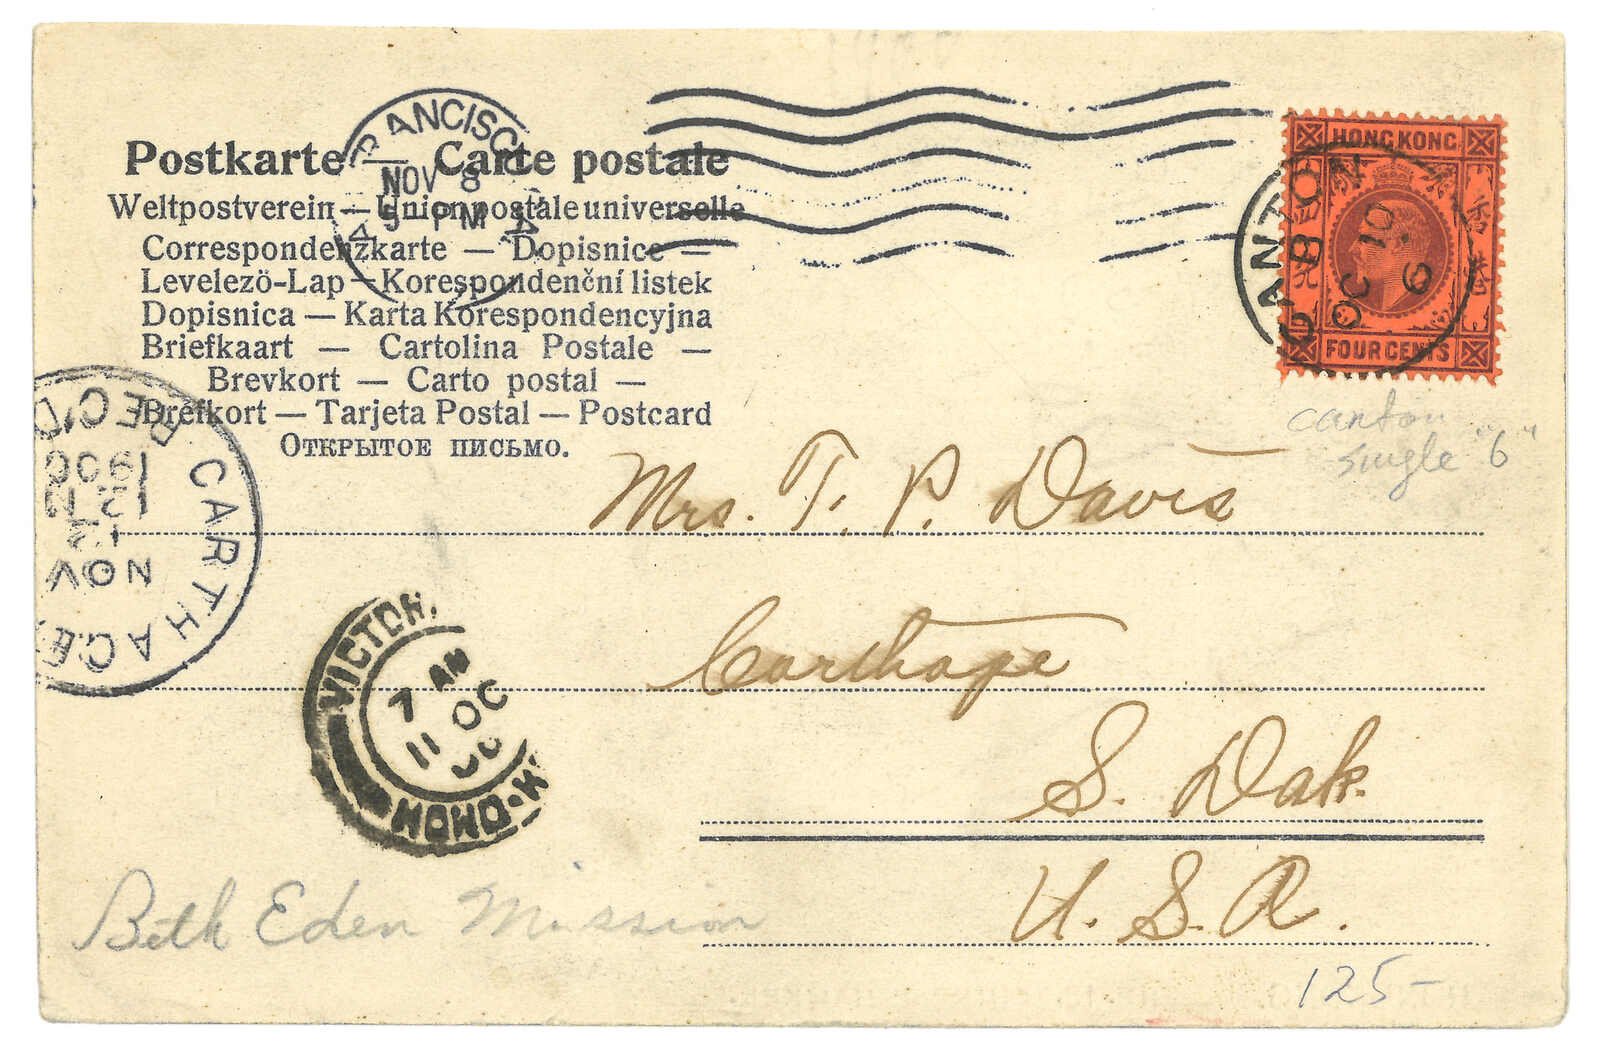 Postkarte — Carte postale
Weltpostverein — Union postale universelle
Correspondenzkarte — Dopisnice —
Levelezö-Lap — Korespondenční listek
Dopisnica — Karta Korespondencyjna
Briefkaart — Cartolina Postale —
Brevkort — Carto postal —
Brefkort — Tarjeta Postal — Postcard
Открытое письмо.
FRANCISCO
NOV 8
5 PM
HONG KONG
FOUR CENTS
CANTON
B
10
OC
6
canton
single "6"
CARTHAGE
REC'D
NOV
12 M
190
Mrs. T. P. Davis
Carthage
S. Dak.
U. S. A.
VICTOR
7 AM
11 OC
HONG-K
Beth Eden Mission
125-